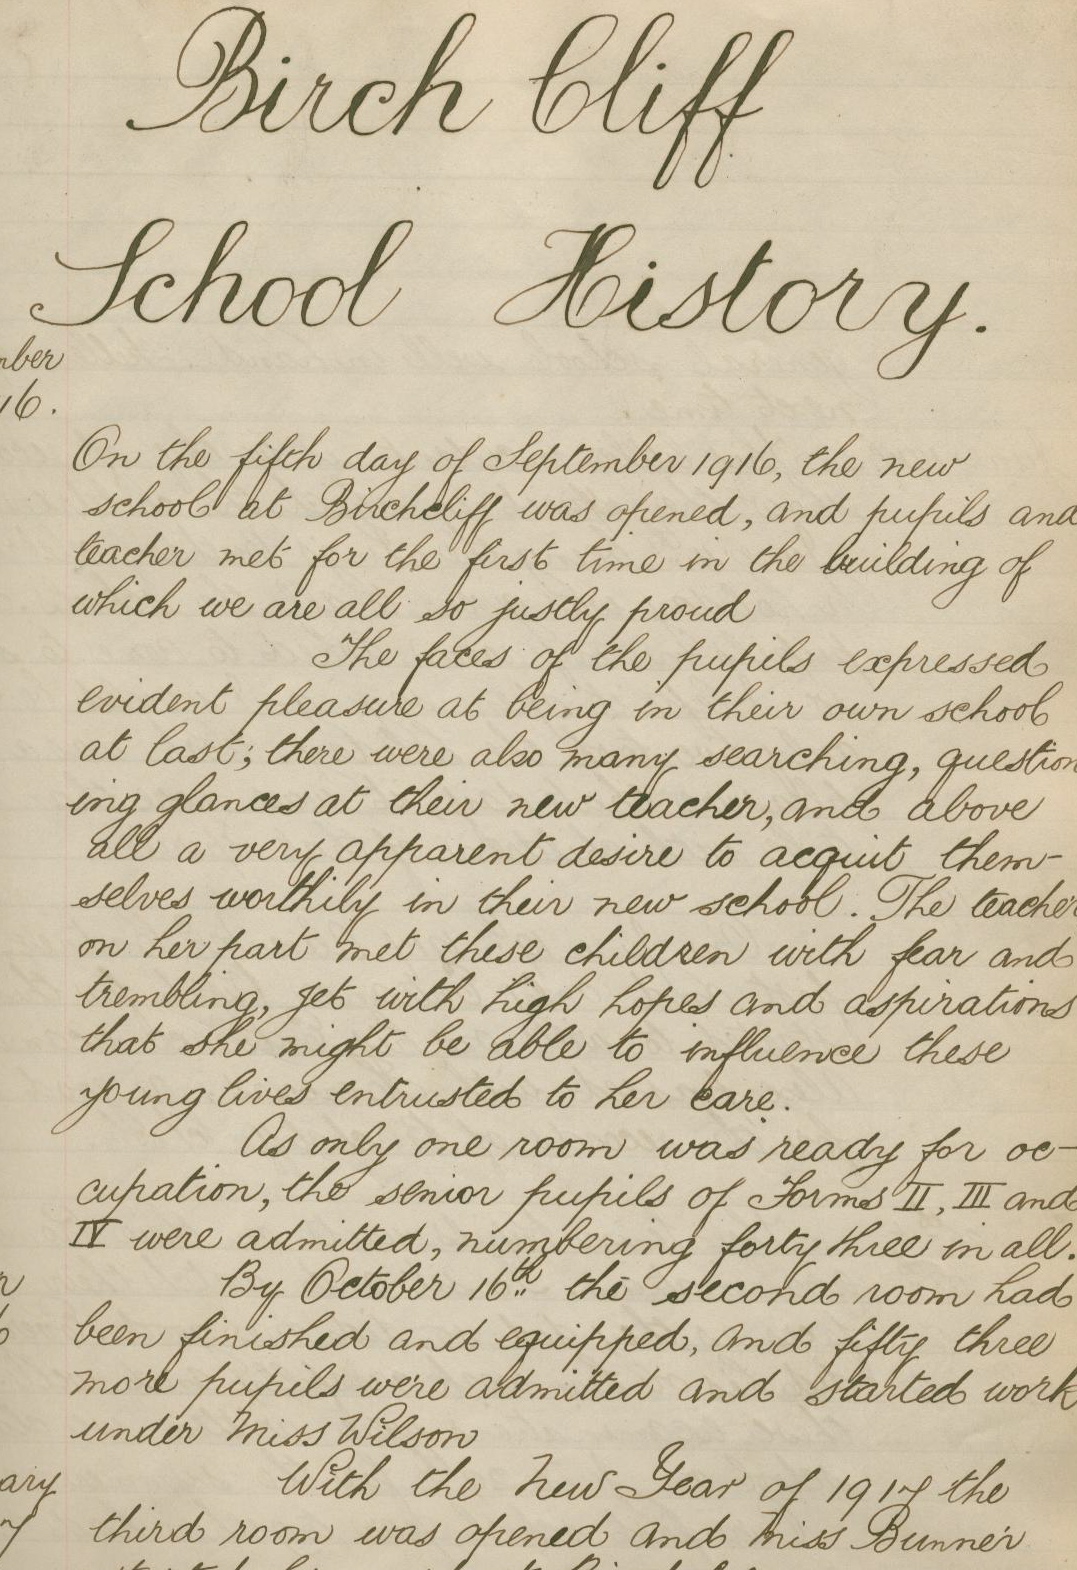 Birch Cliff
School History.
mber
16.
On the fifth day of September 1916, the new
school at Birchcliff was opened, and pupils and
teacher met for the first time in the building of
which we are all so justly proud
The faces of the pupils expressed
evident pleasure at being in their own school
at last; there were also many searching, question
ing glances at their new teacher, and above
all a very apparent desire to acquit them-
selves worthily in their new school. The teacher
on her part met these children with fear and
trembling, yet with high hopes and aspirations
that she might be able to influence these
young lives entrusted to her care.
As only one room was ready for oc-
cupation, the senior pupils of Forms II, III and
IV were admitted, numbering forty three in all.
By October 16th the second room had
been finished and equipped, and fifty three
more pupils were admitted and started work
under Miss Wilson
ary
With the New Year of 1917 the
7
third room was opened and Miss Bunner